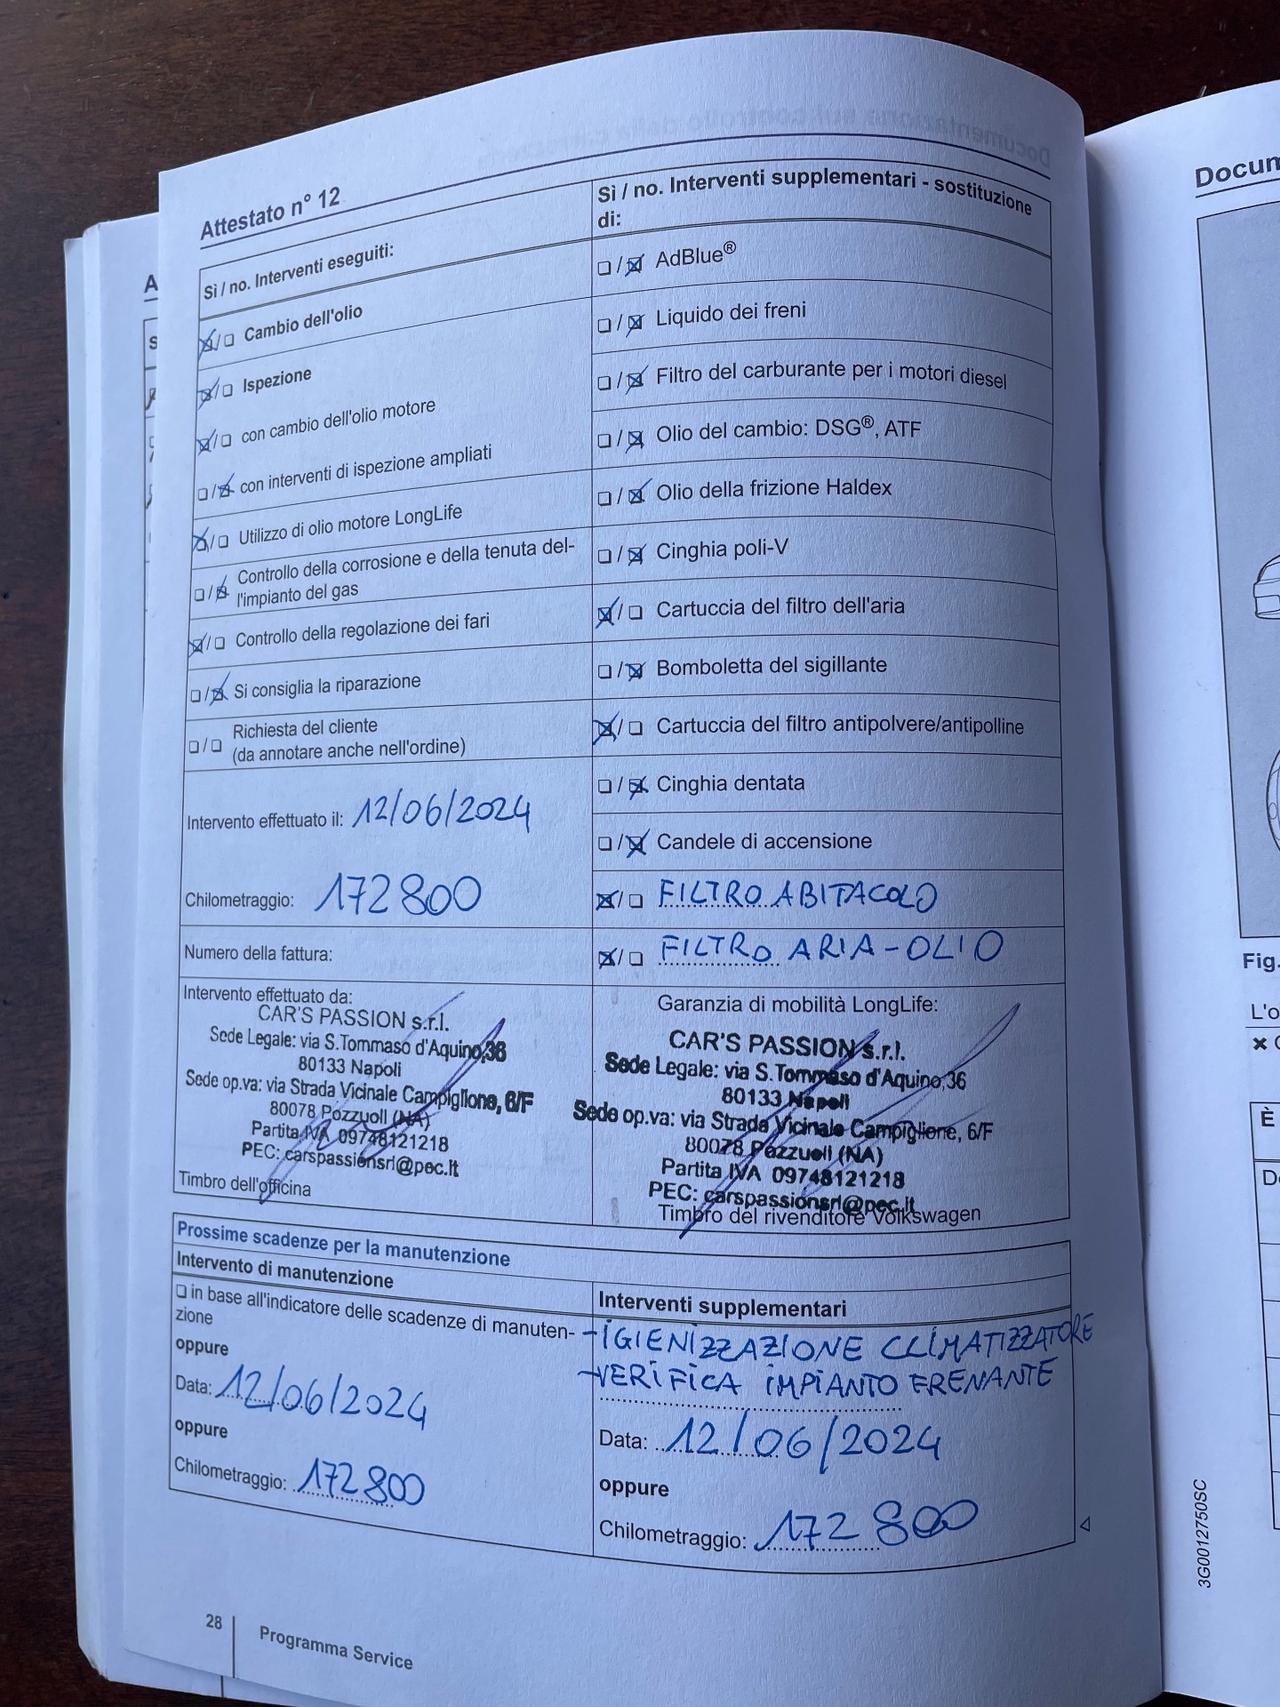 Attestato n° 12
Sì / no. Interventi eseguiti:
☒/❏ Cambio dell'olio
☒/❏ Ispezione
☒/❏ con cambio dell'olio motore
❏/☒ con interventi di ispezione ampliati
☒/❏ Utilizzo di olio motore LongLife
❏/☒ Controllo della corrosione e della tenuta del-
l'impianto del gas
☒/❏ Controllo della regolazione dei fari
❏/☒ Si consiglia la riparazione
❏/❏ Richiesta del cliente
(da annotare anche nell'ordine)
Intervento effettuato il: 12/06/2024
Chilometraggio: 172800
Numero della fattura:
Intervento effettuato da:
CAR'S PASSION s.r.l.
Sede Legale: via S.Tommaso d'Aquino,36
80133 Napoli
Sede op.va: via Strada Vicinale Campiglione, 6/F
80078 Pozzuoli (NA)
Partita IVA 09748121218
PEC: carspassionsrl@pec.it
Timbro dell'officina
Sì / no. Interventi supplementari - sostituzione
di:
❏/☒ AdBlue®
❏/☒ Liquido dei freni
❏/☒ Filtro del carburante per i motori diesel
❏/☒ Olio del cambio: DSG®, ATF
❏/☒ Olio della frizione Haldex
❏/☒ Cinghia poli-V
☒/❏ Cartuccia del filtro dell'aria
❏/☒ Bomboletta del sigillante
☒/❏ Cartuccia del filtro antipolvere/antipolline
❏/☒ Cinghia dentata
❏/☒ Candele di accensione
☒/❏ FILTRO ABITACOLO
☒/❏ FILTRO ARIA-OLIO
Garanzia di mobilità LongLife:
CAR'S PASSION s.r.l.
Sede Legale: via S.Tommaso d'Aquino,36
80133 Napoli
Sede op.va: via Strada Vicinale Campiglione, 6/F
80078 Pozzuoli (NA)
Partita IVA 09748121218
PEC: carspassionsrl@pec.it
Timbro del rivenditore Volkswagen
Prossime scadenze per la manutenzione
Intervento di manutenzione
❏ in base all'indicatore delle scadenze di manuten-
zione
oppure
Data: 12/06/2024
oppure
Chilometraggio: 172800
Interventi supplementari
-IGIENIZZAZIONE CLIMATIZZATORE
-VERIFICA IMPIANTO FRENANTE
Data: 12/06/2024
oppure
Chilometraggio: 172800
28
Programma Service
Docum
Fig.
L'o
È
3G0012750SC